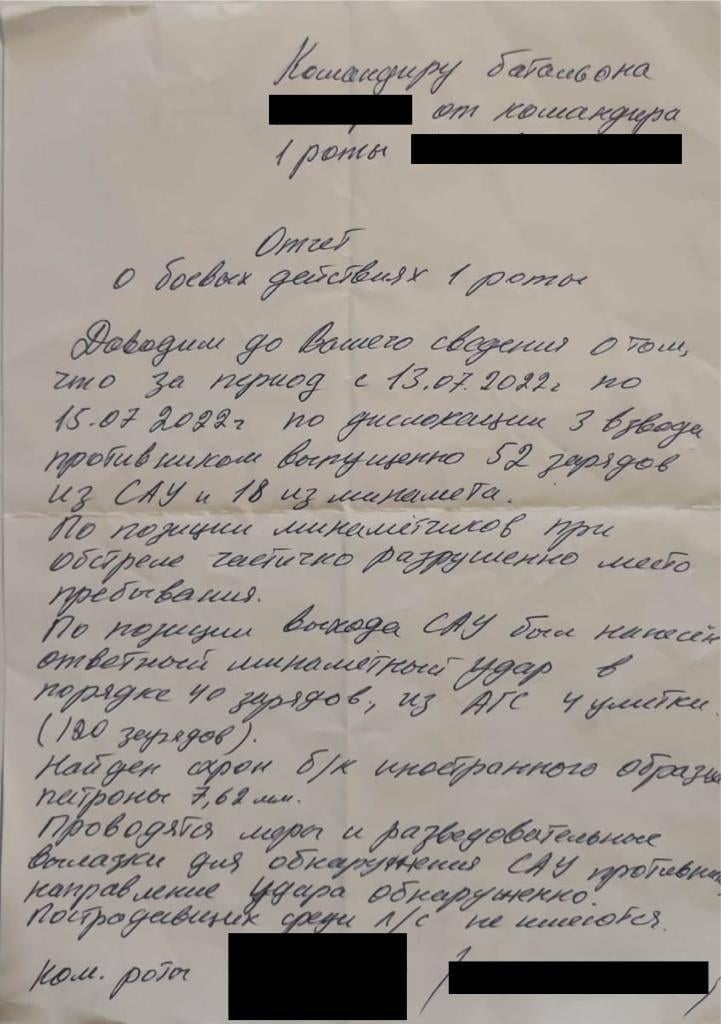 Командиру батальона
от командира
1 роты
Отчет
о боевых действиях 1 роты
Доводим до Вашего сведения о том,
что за период с 13.07.2022г по
15.07 2022г по дислокации 3 взвода
противником выпущенно 52 зарядов
из САУ и 18 из минамета.
По позиции минамётчиков при
обстреле частично разрушенно место
пребывания.
По позиции выхода САУ был нанесён
ответный минамётный удар в
порядке 40 зарядов, из АГС 4 улитки.
(120 зарядов).
Найден схрон б/к иностранного образца
патроны 7,62 мм.
Проводятся меры и разведовательные
вылазки для обнаружения САУ противни
направление удара обнаруженно.
Пострадавших среди л/с не имеются.
Ком. роты